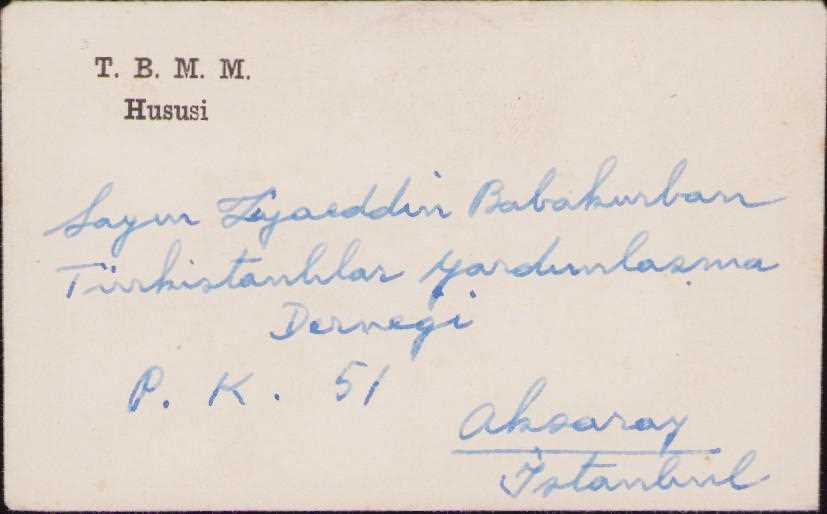 T. B. M. M.
Hususi
Sayın Ziyaeddin Babakurban
Türkistanlılar Yardımlaşma
Derneği
P. K. 51
Aksaray
İstanbul